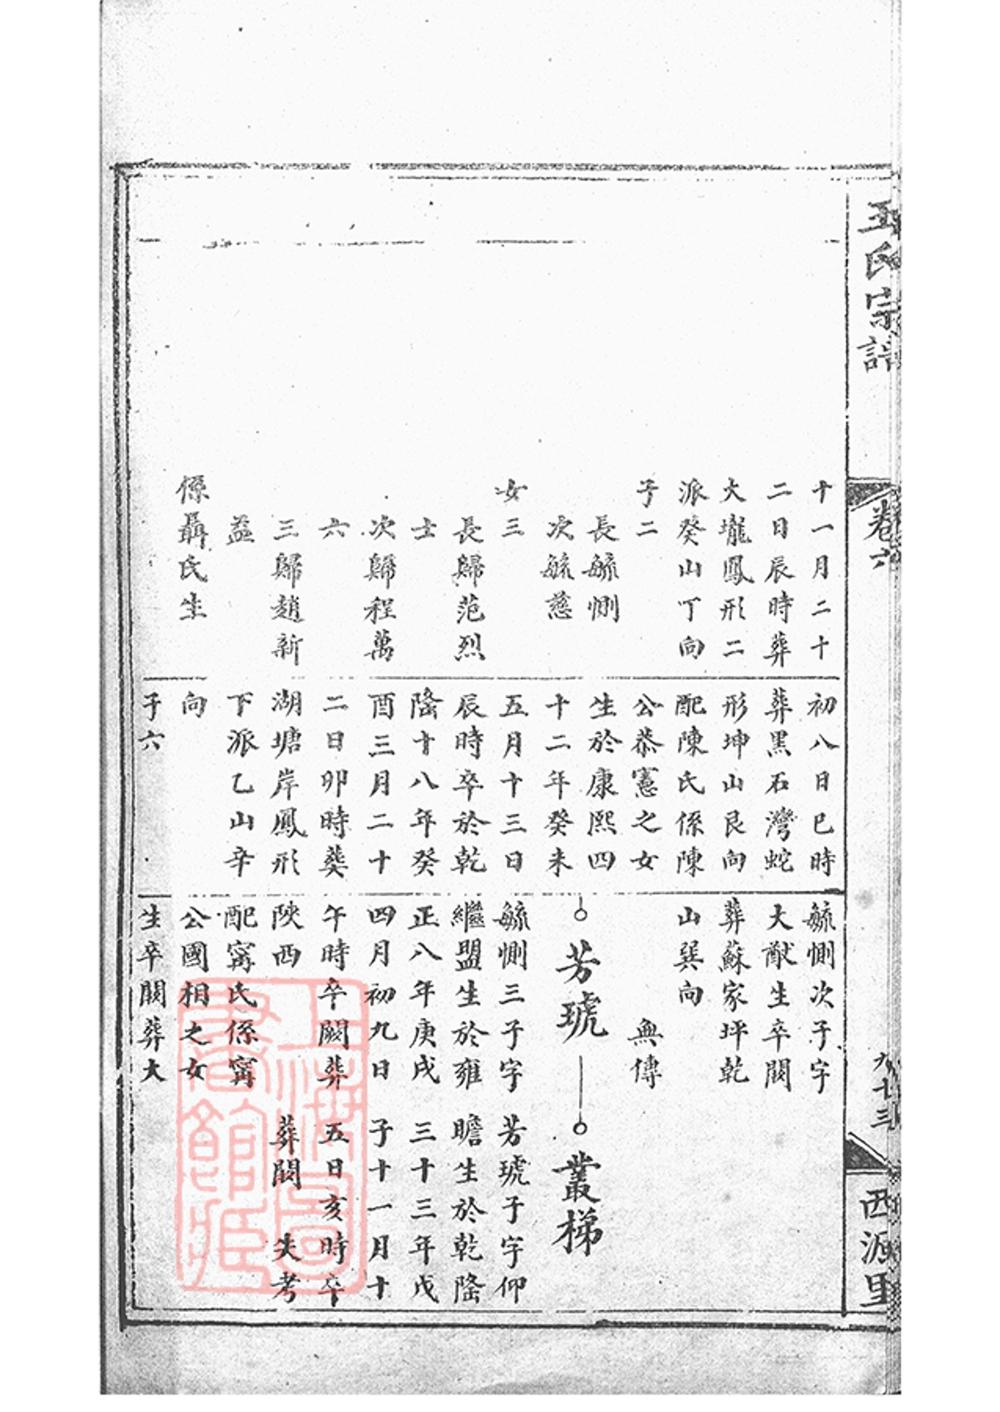 王氏宗譜
卷六
九七三
西源里
十一月二十
二日辰時葬
大壠鳳形二
派癸山丁向
子二
長毓惻
次毓慈
女三
長歸范烈
士
次歸程萬
六
三歸趙新
益
係聶氏生
初八日巳時
葬黑石灣蛇
形坤山艮向
配陳氏係陳
公恭憲之女
生於康熙四
十二年癸未
五月十三日
辰時卒於乾
隆十八年癸
酉三月二十
二日卯時葬
湖塘岸鳳形
下派乙山辛
向
子六
毓惻次子字
大猷生卒闕
葬蘇家坪乾
山巽向
無傳
芳琥
毓惻三子字
繼盟生於雍
正八年庚戌
四月初九日
午時卒闕葬
陝西
配甯氏係甯
公國相之女
生卒闕葬大
叢梯
芳琥子字仰
瞻生於乾隆
三十三年戊
子十一月十
五日亥時卒
葬闕 失考
上海圖書館藏